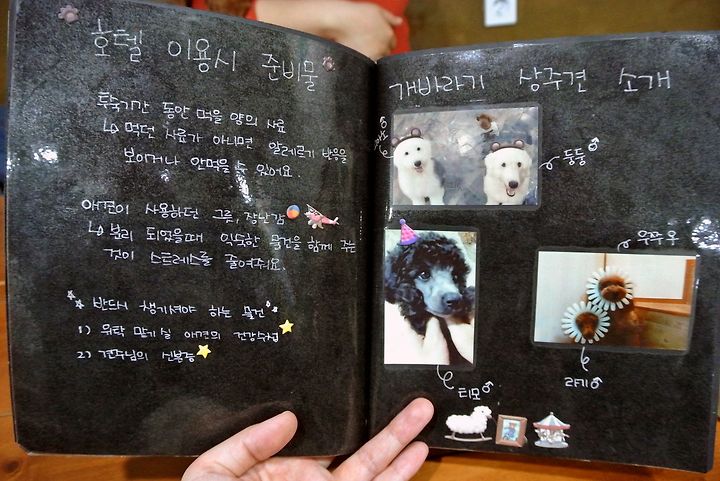 호텔 이용시 준비물
투숙기간 동안 먹을 양의 사료
↳ 먹던 사료가 아니면 알레르기 반응을
보이거나 안먹을 수 있어요.
애견이 사용하던 그릇, 장난감
↳ 분리 되었을때 익숙한 물건을 함께 두는
것이 스트레스를 줄여줘요.
반드시 챙기셔야 하는 물건
1) 위탁 맡기실 애견의 건강수첩
2) 견주님의 신분증
개바라기 상주견 소개
둥둥♂
티모♂
우쭈우
라키♂